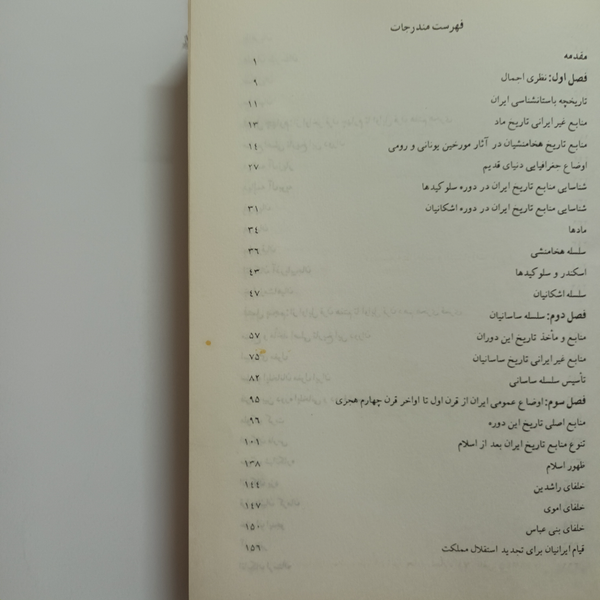 فهرست مندرجات
مقدمه ۱
فصل اول: نظری اجمال ۹
تاریخچه باستانشناسی ایران ۱۱
منابع غیر ایرانی تاریخ ماد ۱۳
منابع تاریخ هخامنشیان در آثار مورخین یونانی و رومی ۱۴
اوضاع جغرافیایی دنیای قدیم ۲۷
شناسایی منابع تاریخ ایران در دوره سلوکیدها
شناسایی منابع تاریخ ایران در دوره اشکانیان ۳۱
مادها ۳۴
سلسله هخامنشی ۳۶
اسکندر و سلوکیدها ۴۳
سلسله اشکانیان ۴۷
فصل دوم: سلسله ساسانیان
منابع و مآخذ تاریخ این دوران ۵۷
منابع غیر ایرانی تاریخ ساسانیان ۷۵
تأسیس سلسله ساسانی ۸۲
فصل سوم: اوضاع عمومی ایران از قرن اول تا اواخر قرن چهارم هجری ۹۵
منابع اصلی تاریخ این دوره ۹۶
تنوع منابع تاریخ ایران بعد از اسلام ۱۰۱
ظهور اسلام ۱۳۸
خلفای راشدین ۱۴۴
خلفای اموی ۱۴۷
خلفای بنی عباس ۱۵۰
قیام ایرانیان برای تجدید استقلال مملکت ۱۵۶